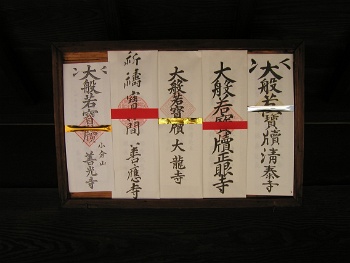 大般若寶牘 清泰寺
大般若寶牘 正眼寺
大般若寶牘 大龍寺
祈禱寶牘 善應寺
大般若寶牘 小倉山 善光寺